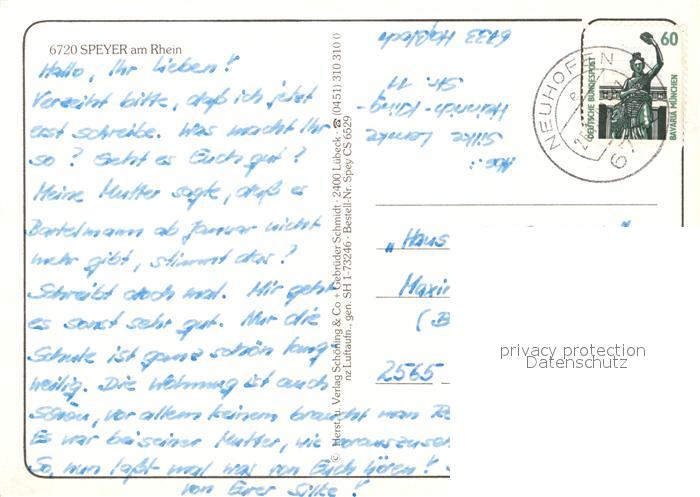 6720 SPEYER am Rhein
Hallo, Ihr Lieben!
Verzeiht bitte, daß ich jetzt
erst schreibe. Was macht Ihr
so? Geht es Euch gut?
Meine Mutter sagte, daß es
Bartelmann ab Januar nicht
mehr gibt, stimmt das?
Schreibt doch mal. Mir geht
es sonst sehr gut. Nur die
Schule ist ganz schön lang
weilig. Die Wohnung ist auch
schön, vor allem keinem braucht man
Es war bei seiner Mutter, wie vorauszuse
So, nun laßt mal was von Euch hören!
von Eurer Silke!
© Herst. u. Verlag Schöning & Co + Gebrüder Schmidt · 2400 Lübeck · ☎ (0451) 310 310 0
nz Luftaufn., gen. SH 1-73246 · Bestell-Nr. Spey CS 6529
Abs.:
Silke Lemke
Heinrich-Kling-
Str. 11
6733 Haßloch
NEUHOFEN
67
DEUTSCHE BUNDESPOST
60
BAVARIA MÜNCHEN
„Haus
Maxi
(B
2565
privacy protection
Datenschutz